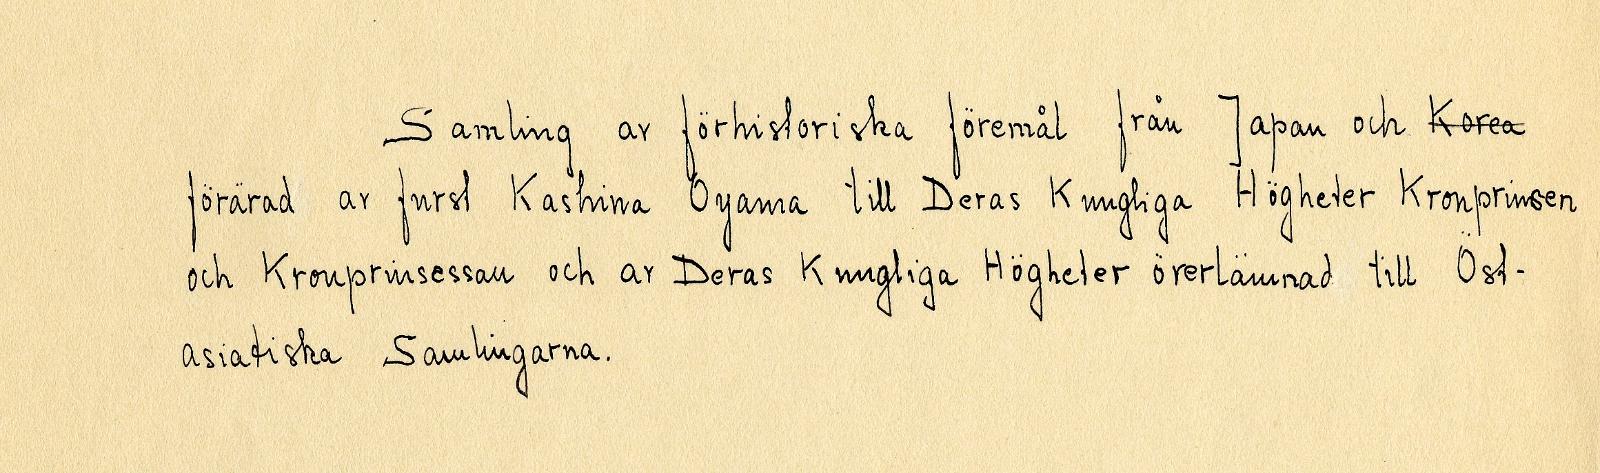 Samling av förhistoriska föremål från Japan och Korea
förärad av furst Kashiwa Oyama till Deras Kungliga Högheter Kronprinsen
och Kronprinsessan och av Deras Kungliga Högheter överlämnad till Öst-
asiatiska Samlingarna.